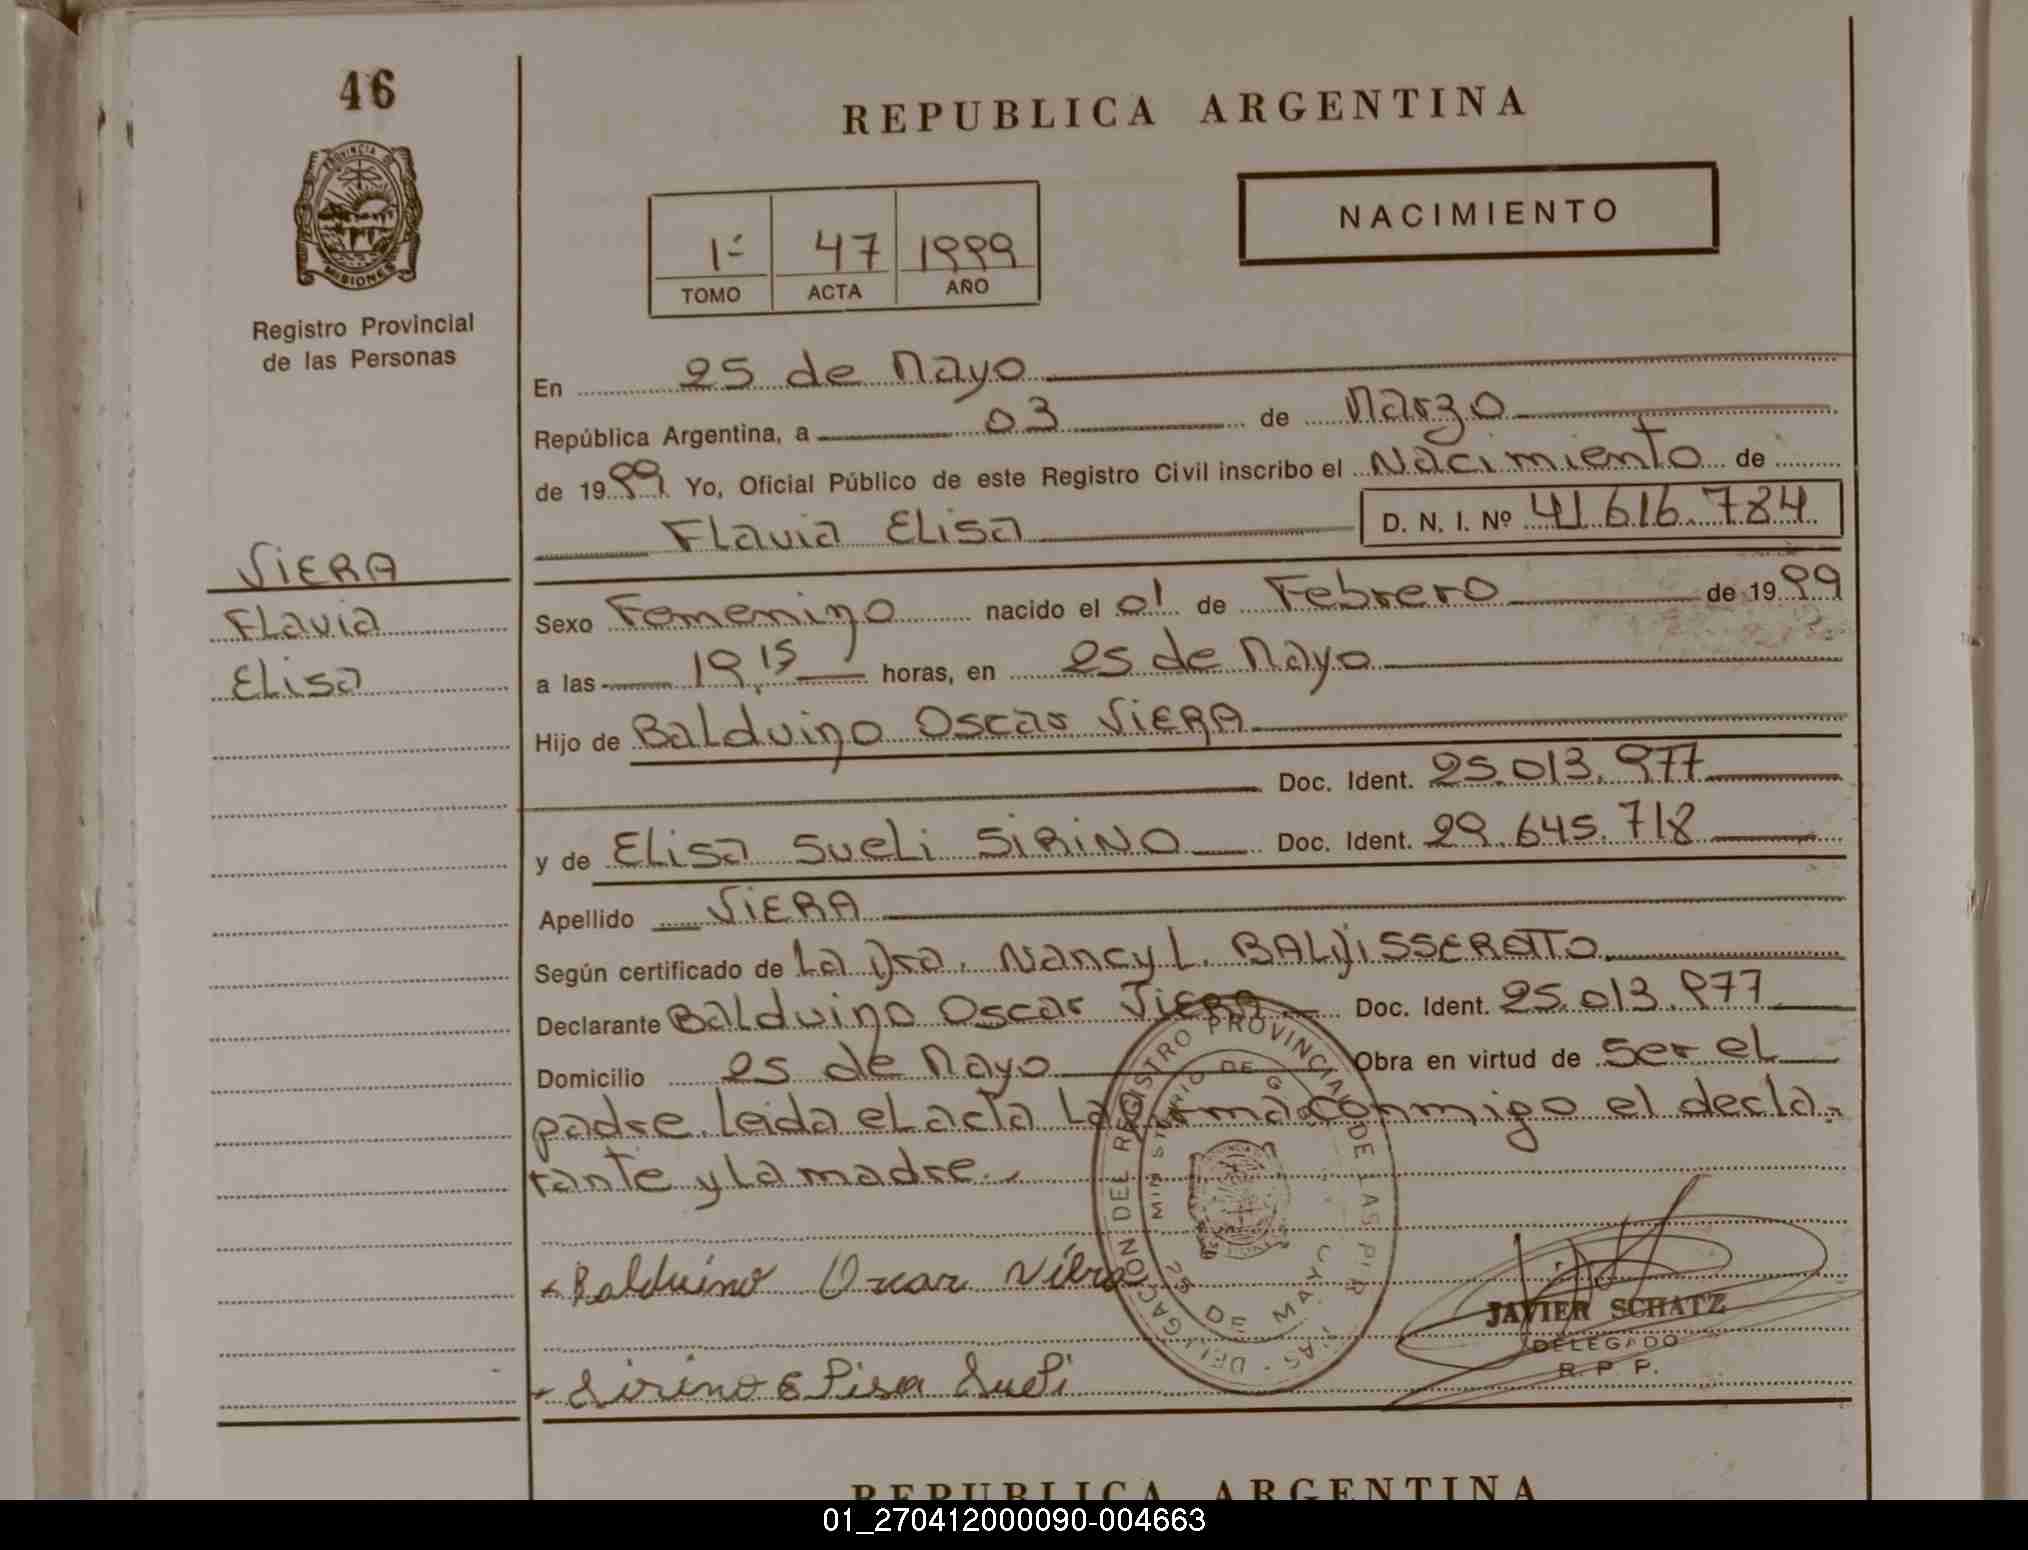 46
PROVINCIA DE
MISIONES
Registro Provincial
de las Personas
REPUBLICA ARGENTINA
NACIMIENTO
1º 47 1999
TOMO ACTA AÑO
En 25 de Mayo
República Argentina, a 03 de Marzo
de 1999. Yo, Oficial Público de este Registro Civil inscribo el Nacimiento de
Flavia Elisa D. N. I. Nº 41.616.784
VIERA
Flavia
Elisa
Sexo Femenino nacido el 01 de Febrero de 1999
a las 19,15 horas, en 25 de Mayo
Hijo de Balduino Oscar VIERA
Doc. Ident. 25.013.977
y de Elisa Sueli SIRINO Doc. Ident. 29.645.718
Apellido VIERA
Según certificado de La Dra. Nancy L. BALDISSEROTTO
Declarante Balduino Oscar VIERA Doc. Ident. 25.013.977
Domicilio 25 de Mayo Obra en virtud de ser el
padre. Leida el acta La firma conmigo el decla-
rante y La madre.
DELEGACION DEL REGISTRO PROVINCIAL DE LAS PER
MINISTERIO DE G
25 DE MAYO
Balduino Oscar Viera
JAVIER SCHATZ
DELEGADO
R. P. P.
Sirino Elisa Sueli
REPUBLICA ARGENTINA
01_270412000090-004663